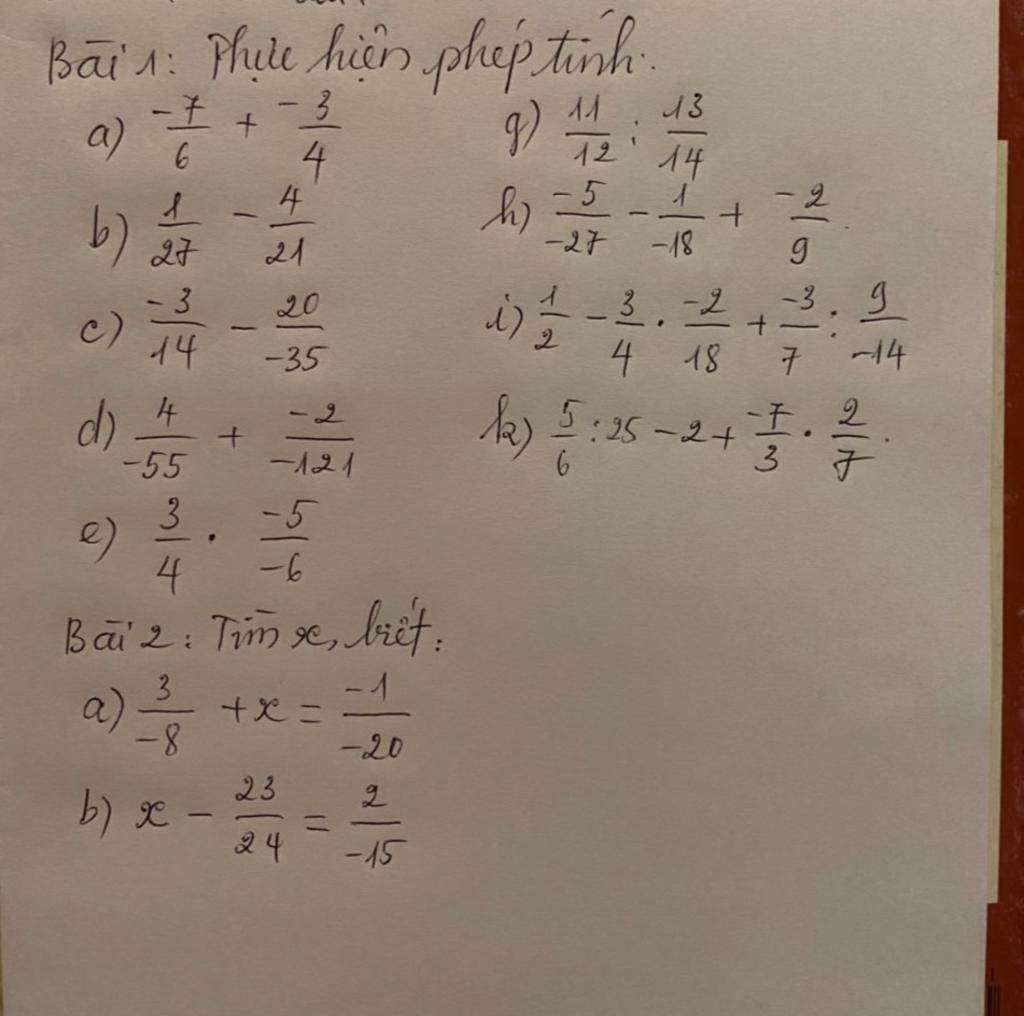 Bài 1: Thực hiện phép tính.
a) -7/6 + -3/4
b) 1/27 - 4/21
c) -3/14 - 20/-35
d) 4/-55 + -2/-121
e) 3/4 . -5/-6
g) 11/12 : 13/14
h) -5/-27 - 1/-18 + -2/9.
i) 1/2 - 3/4 . -2/18 + -3/7 : 9/-14
k) 5/6 : 25 - 2 + -7/3 . 2/7.
Bài 2: Tìm x, biết:
a) 3/-8 + x = -1/-20
b) x - 23/24 = 2/-15